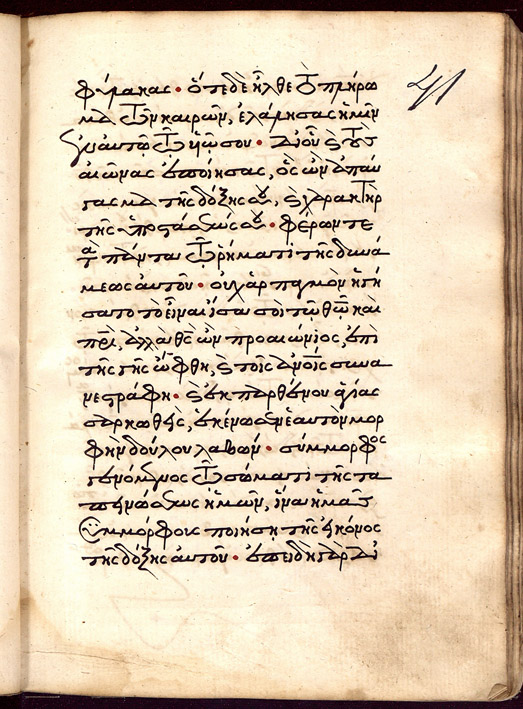 41
φύλακας· ὅτε δὲ ἦλθε τὸ πλήρω
μα τῶν καιρῶν, ἐλάλησας ἡμῖν
ἐν αὐτῷ τῷ υἱῷ σου· δι οὗ καὶ τοὺς
αἰῶνας ἐποίησας, ὃς ὢν ἀπαύ
γασμα τῆς δόξης σου, καὶ χαρακτὴρ
τῆς ὑποστάσεώς σου· φέρων τε
τὰ πάντα τῷ ῥήματι τῆς δυνά
μεως αὐτοῦ· οὐχ ἁρπαγμὸν ἡγή
σατο τὸ εἶναι ἴσα σοὶ τῷ θῷ καὶ
πρὶ, ἀλλὰ θς ὢν προαιώνιος, ἐπὶ
τῆς γῆς ὤφθη, καὶ τοῖς ἀνοις συνα
νεστράφη· καὶ ἐκ παρθένου ἁγίας
σαρκωθεὶς, ἐκένωσεν ἑαυτὸν μορ
φὴν δούλου λαβών· σύμμορφος
γενόμενος τῷ σώματι τῆς τα
πεινώσεως ἡμῶν, ἵνα ἡμᾶς
συμμόρφους ποιήσῃ τῆς εἰκόνος
τῆς δόξης αὐτοῦ· ἐπειδὴ γὰρ δι